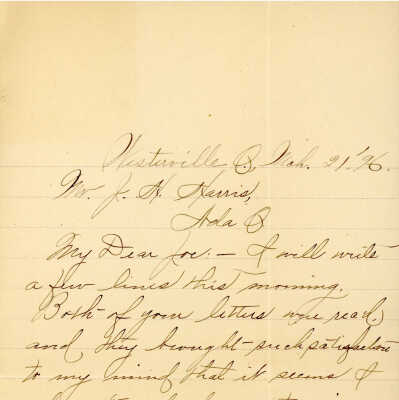 Westerville O, Mch. 21, '96.
Mr. J. H. Harris,
Ada O
My Dear Joe: — I will write
a few lines this morning.
Both of your letters were read,
and they brought such satisfaction
to my mind that it seems I